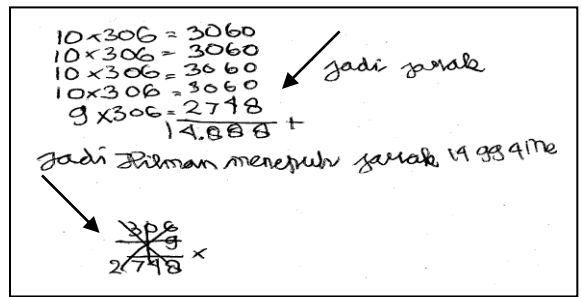 10×306 = 3060
10×306 = 3060
10×306 = 3060
10×306 = 3060
9×306 = 2748
14.888 +
Jadi jarak
Jadi Hilman menepuh jarak 14 994 me
306
9
2748 ×